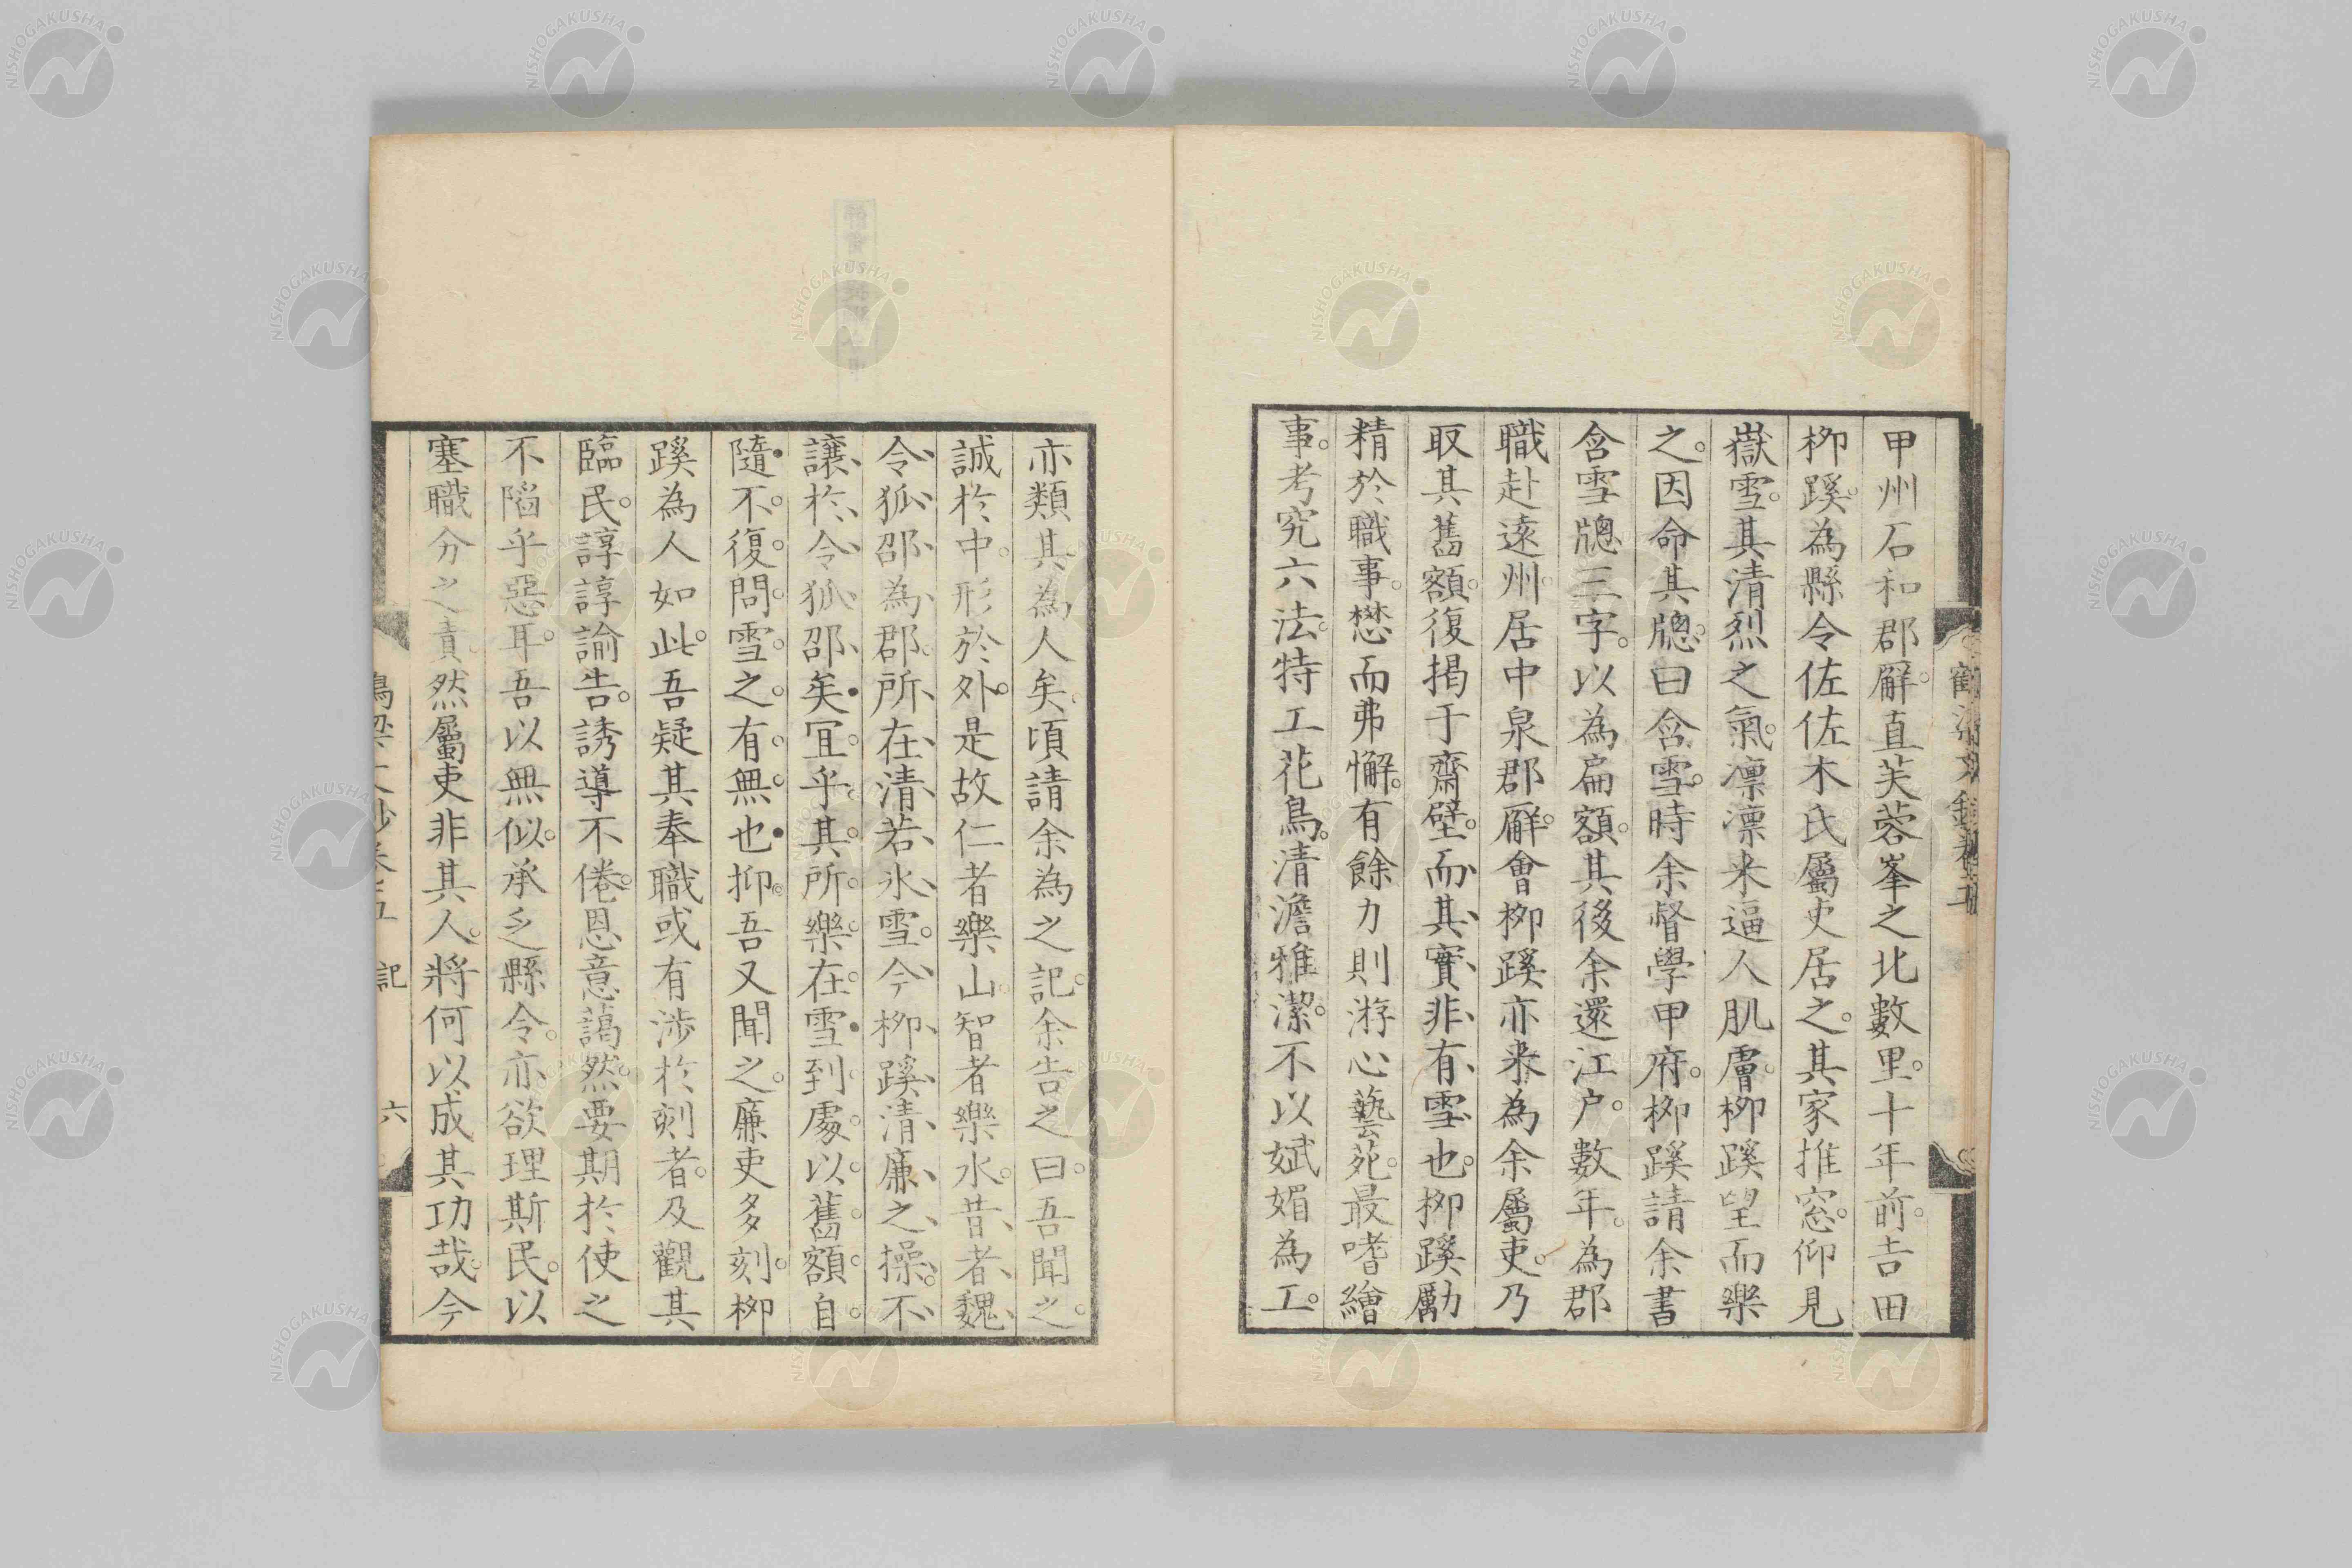 甲州石和郡廨。直芙蓉峯之北數里。十年前。吉田
柳蹊。為縣令佐佐木氏屬吏居之。其家推窓。仰見
嶽雪。其清烈之氣。凛凛来逼人肌膚。柳蹊望而樂
之。因命其牕。曰含雪。時余督學甲府。柳蹊請余書
含雪牕三字。以為扁額。其後余還江戶。數年。為郡
職赴遠州。居中泉郡廨。會柳蹊亦来為余屬吏。乃
取其舊額。復掲于齋壁。而其實非有雪也。柳蹊勵
精於職事。懋而弗懈。有餘力則游心藝苑。最嗜繪
事。考究六法。特工花鳥。清澹雅潔。不以娬媚為工。
亦類其為人矣。頃請余為之記。余告之曰。吾聞之。
誠於中。形於外。是故仁者樂山。智者樂水。昔者魏
令狐邵為郡。所在清若氷雪。今柳蹊清廉之操。不
讓於令狐邵矣。冝乎其所樂在雪。到處以舊額自
隨。不復問雪之有無也。抑吾又聞之。廉吏多刻。柳
蹊為人如此。吾疑其奉職或有涉於刻者。及觀其
臨民。諄諄諭告。誘導不倦。恩意藹然。要期於使之
不陷乎惡耳。吾以無似。承乏縣令。亦欲理斯民。以
塞職分之責。然屬吏非其人。將何以成其功哉。今
記
六